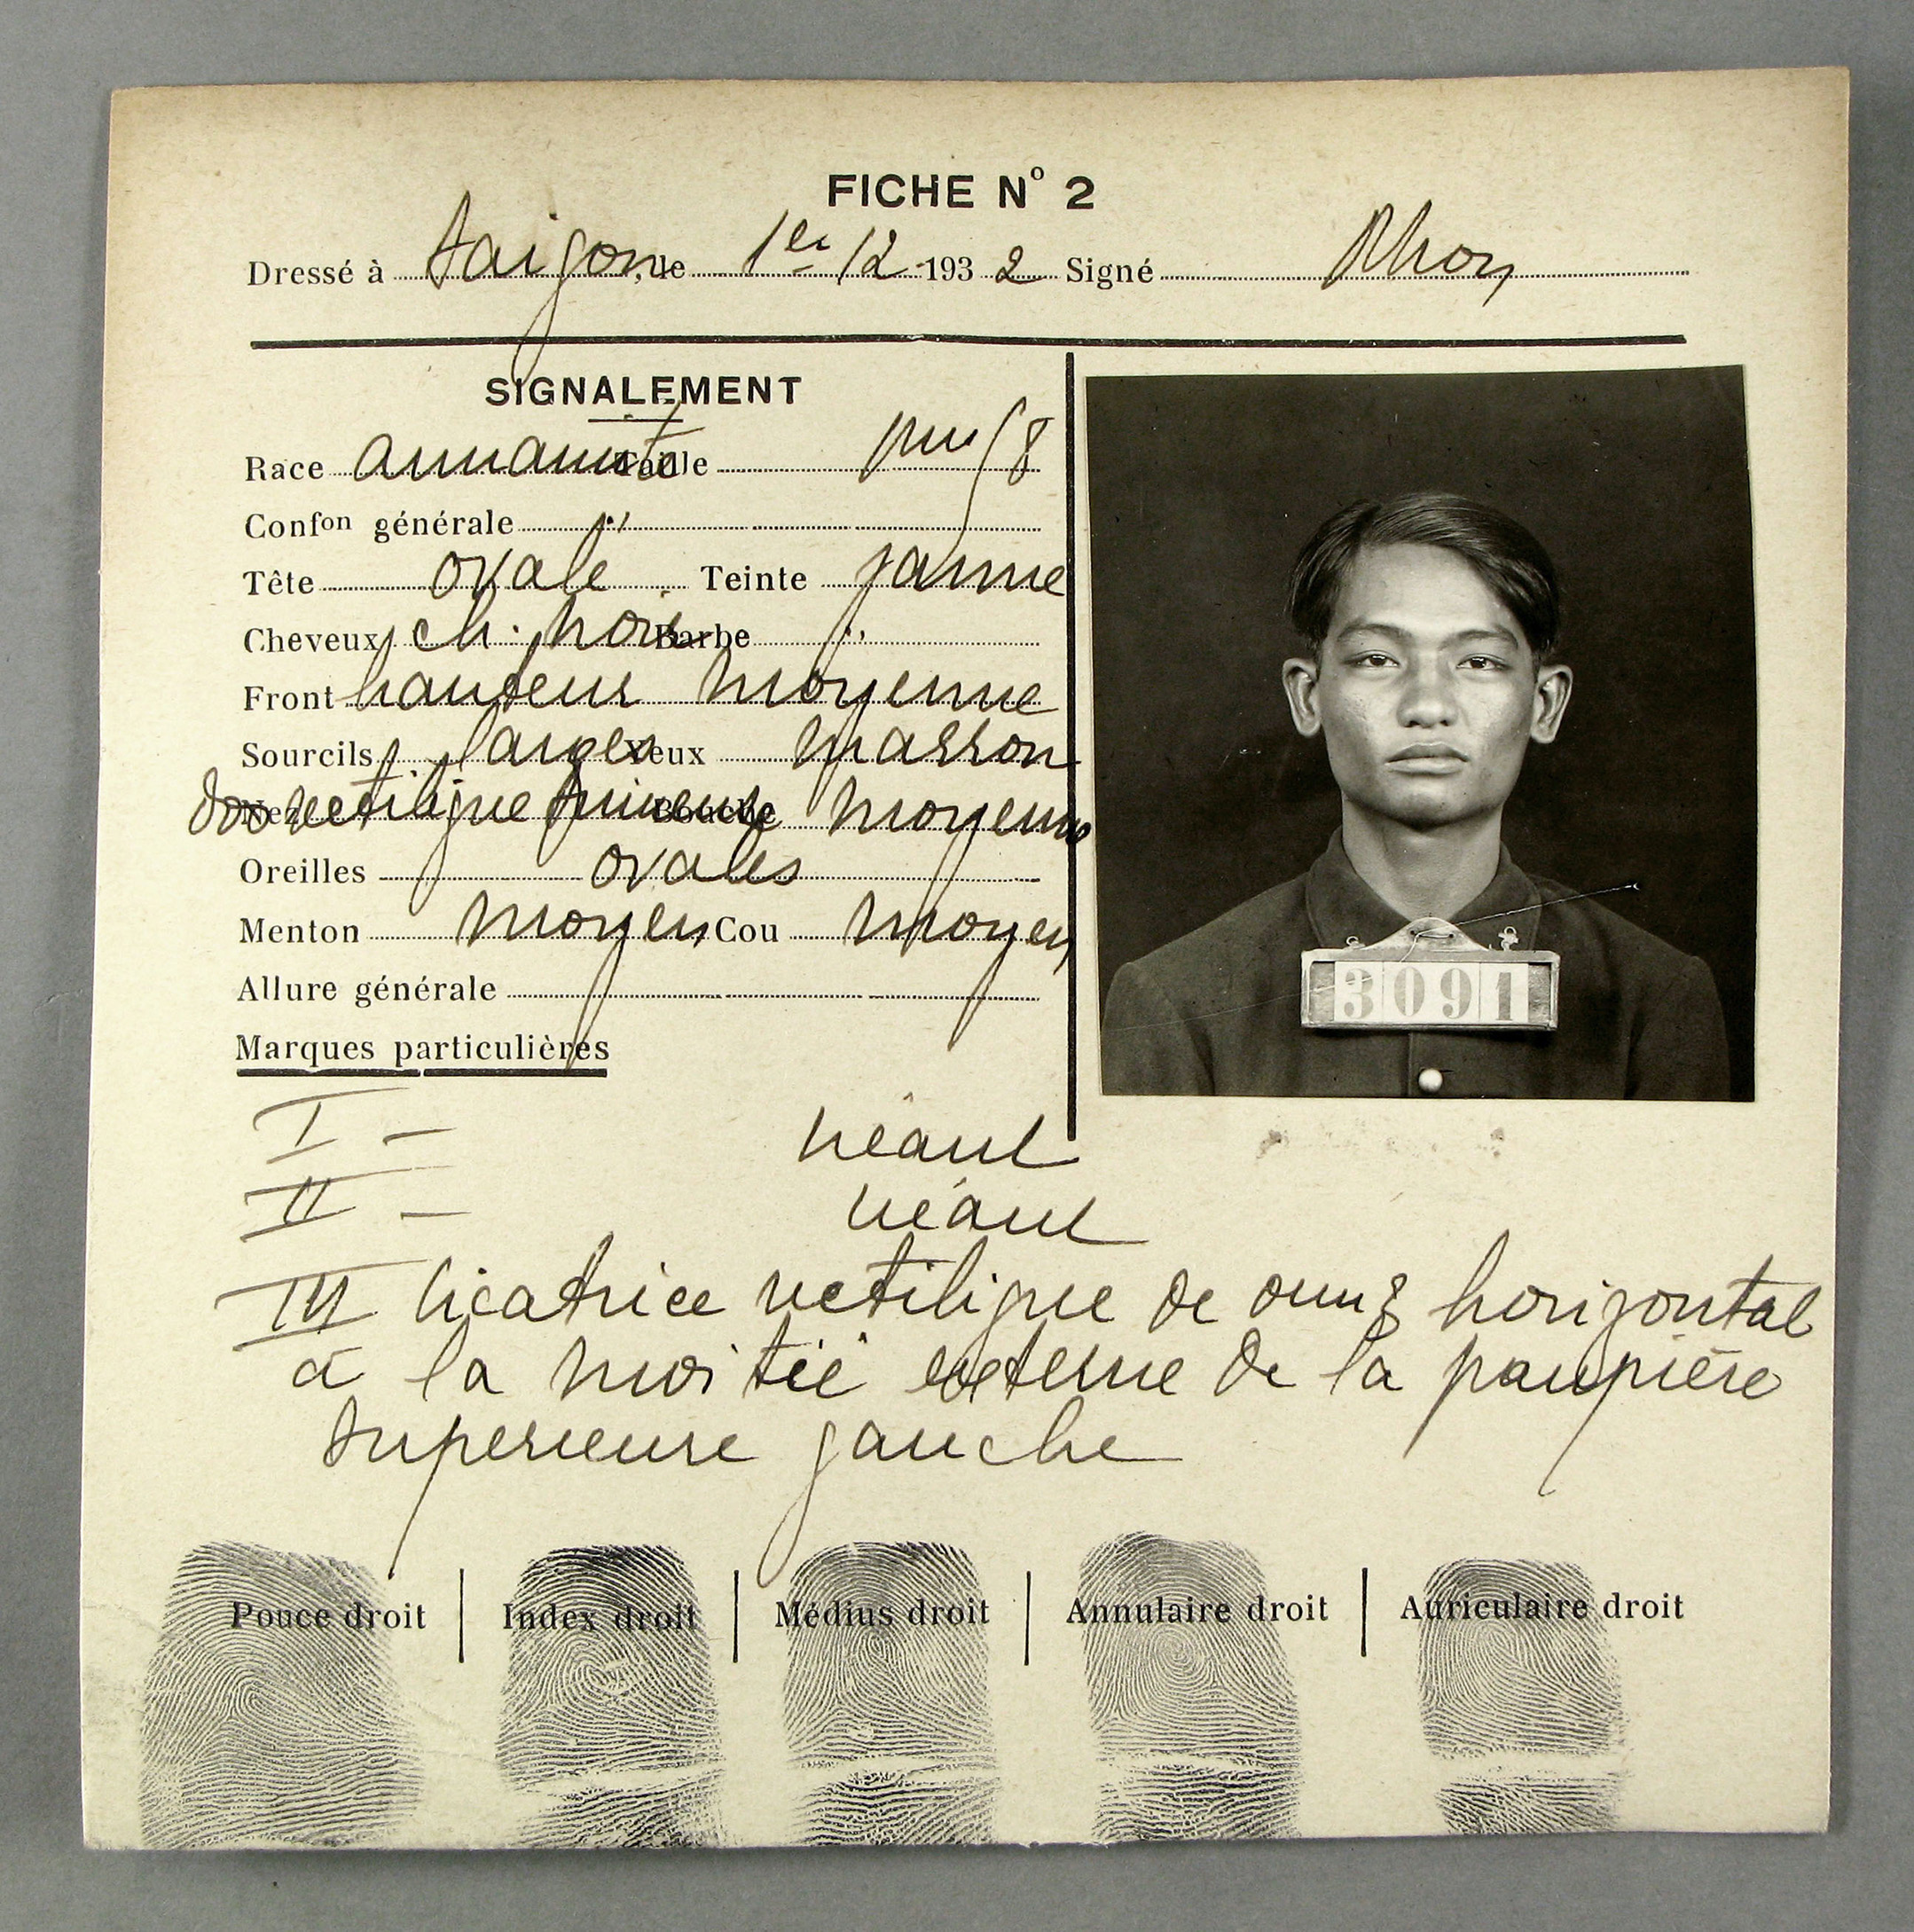 FICHE Nº 2
Dressé à Saigon, le 1er 12 1932 Signé
SIGNALEMENT
Race annamite Taille 1m58
Confon générale
Tête ovale Teinte jaune
Cheveux ch. noirs Barbe
Front hauteur moyenne
Sourcils larges Yeux marron
Nez dos rectiligne Bouche moyenne
Oreilles ovales
Menton moyen Cou moyen
Allure générale
Marques particulières
I - néant
II - néant
III cicatrice rectiligne de horizontal
à la moitié externe de la paupière
superieure gauche
3091
Pouce droit Index droit Médius droit Annulaire droit Auriculaire droit